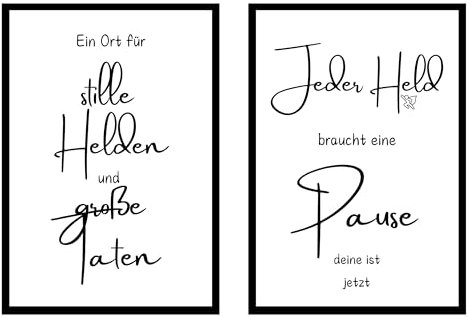 Ein Ort für
stille
Helden
und
große
Taten
Jeder Held
braucht eine
Pause
deine ist
jetzt